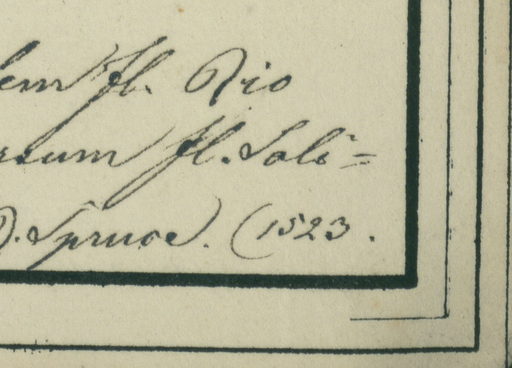 lem fl. Rio
rsum fl. Soli=
). Spruce. (1523.